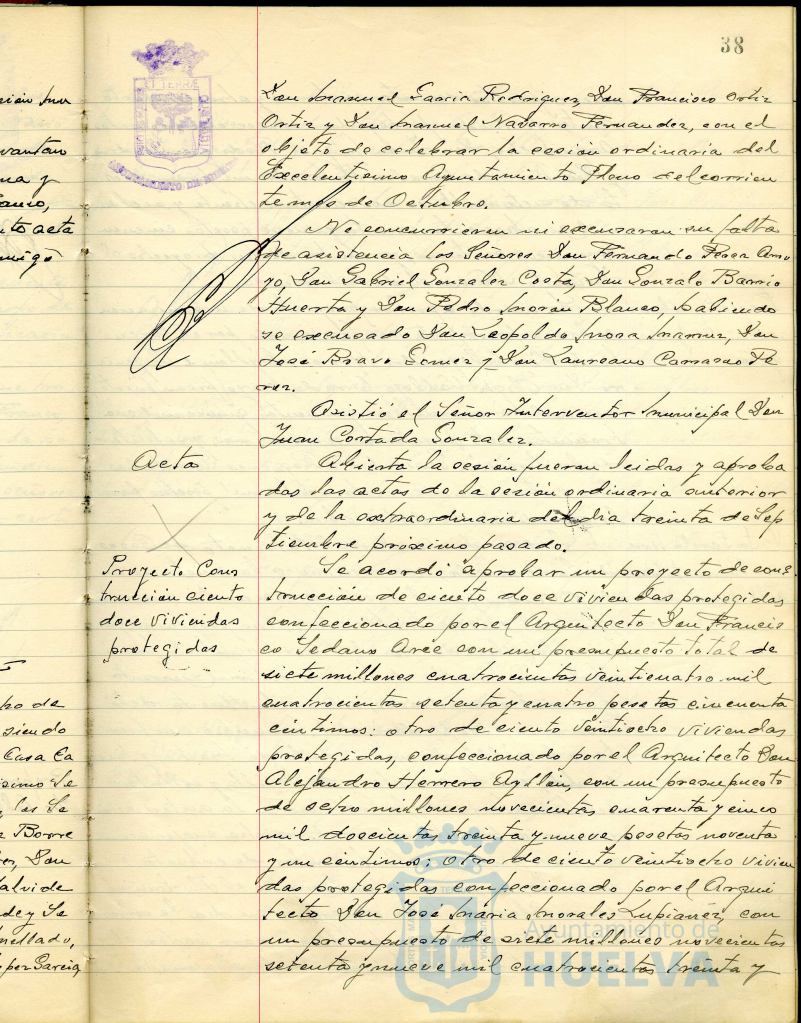 38
Don Manuel Garcia Rodriguez, Don Francisco Ortiz
Ortiz y Don Manuel Navarro Fernandez, con el
objeto de celebrar la sesión ordinaria del
Excelentisimo Ayuntamiento Pleno del corrien
te mes de Octubre.
No concurrieron ni excusaron su falta
de asistencia los Señores Don Fernando Perez Arro
yo, Don Gabriel Gonzalez Costa, Don Gonzalo Barrio
Huerta y Don Pedro Morón Blanco, habiendo
se excusado Don Leopoldo Mora Don
José Bravo Gomez y Don Laureano Carrasco Pe
rez.
Asistió el Señor Interventor Municipal Don
Juan Cortada Gonzalez.
Acta
Abierta la sesión fueron leidas y aproba
das las actas de la sesión ordinaria anterior
y de la extraordinaria del dia treinta de Sep
tiembre próximo pasado.
Proyecto Cons
trucción ciento
doce viviendas
protegidas
Se acordó aprobar un proyecto de cons
trucción de ciento doce viviendas protegidas
confeccionado por el Arquitecto Don Francis
co Sedano Arce con un presupuesto total de
siete millones cuatrocientas veinticuatro mil
cuatrocientas setenta y cuatro pesetas cincuenta
céntimos: otro de ciento veintiocho viviendas
protegidas, confeccionado por el Arquitecto Don
Alejandro Herrero Ayllón, con un presupuesto
de ocho millones novecientas cuarenta y cinco
mil doscientas treinta y nueve pesetas noventa
y un céntimos; otro de ciento veintiocho vivien
das protegidas confeccionado por el Arqui
tecto Don José Maria Morales Lupiañez, con
un presupuesto de siete millones novecientas
setenta y nueve mil cuatrocientas treinta y
Ayuntamiento de
HUELVA
vantan
na y
to acta
po de
siendo
Casa Ca
simo Se
los Se
Borre
Don
alvide
de y Se
nellado,
pez Garcia,